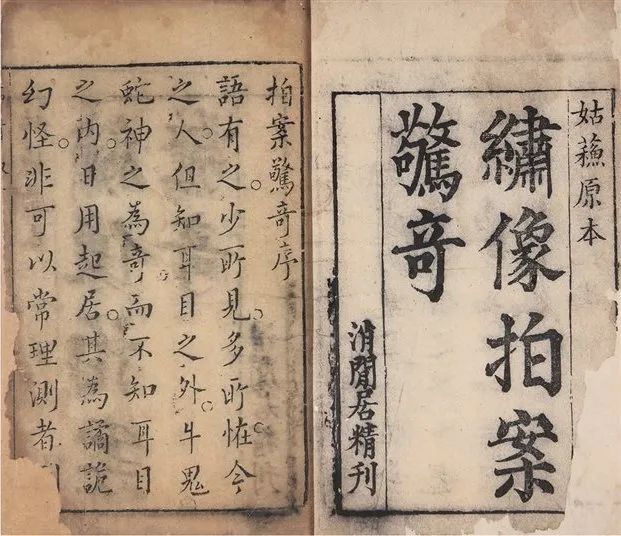 姑蘓原本
繡像拍案
驚奇
消閒居精刊
拍案驚奇序
語有之少所見多所怪今
之人但知耳目之外牛鬼
蛇神之為奇而不知耳目
之内日用起居其為譎詭
幻怪非可以常理測者